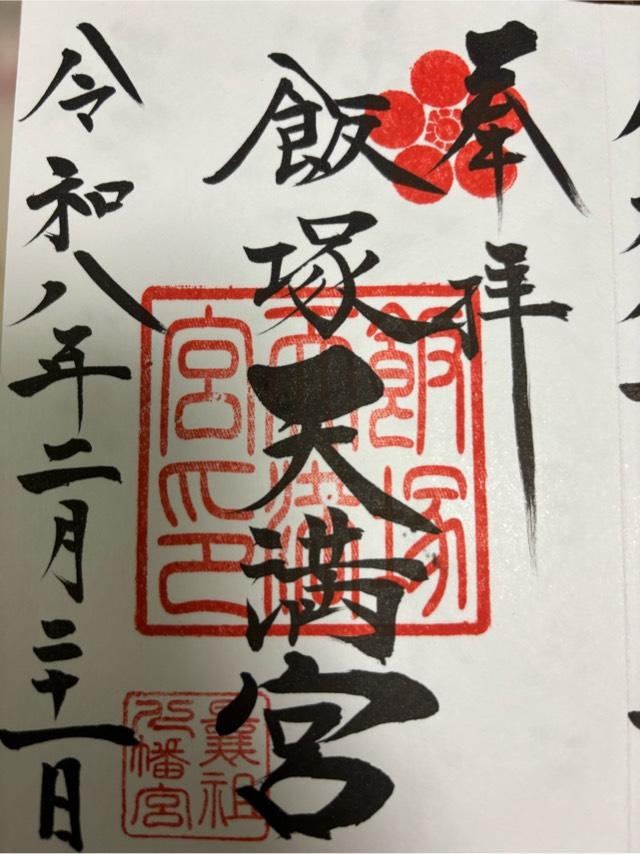 奉拝
飯塚天満宮
飯塚天満宮印
曩祖八幡宮
令和八年二月二十一日